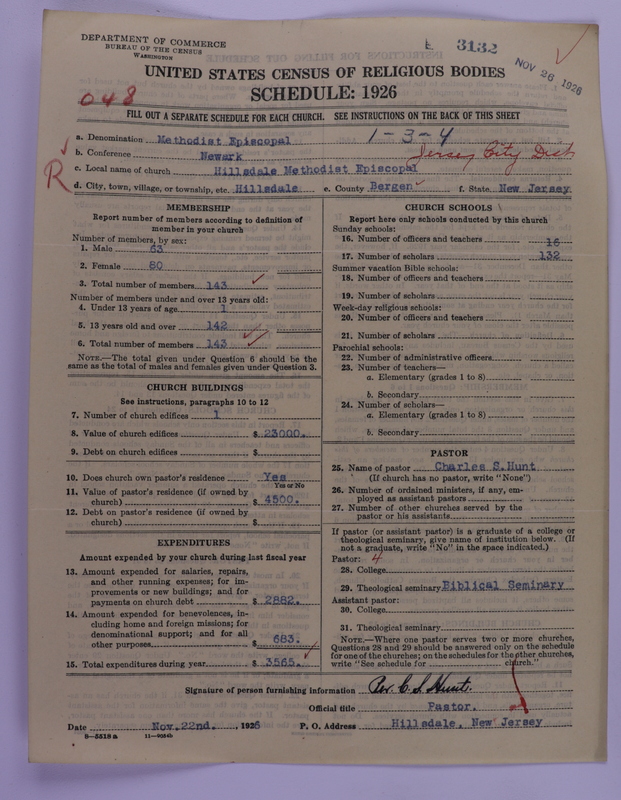 DEPARTMENT OF COMMERCE
BUREAU OF THE CENSUS
WASHINGTON
3132
NOV 26 1926
UNITED STATES CENSUS OF RELIGIOUS BODIES
SCHEDULE: 1926
048
FILL OUT A SEPARATE SCHEDULE FOR EACH CHURCH. SEE INSTRUCTIONS ON THE BACK OF THIS SHEET
a. Denomination Methodist Episcopal 1-3-4
b. Conference Newark Jersey City Dist
c. Local name of church Hillsdale Methodist Episcopal
R
d. City, town, village, or township, etc. Hillsdale e. County Bergen f. State New Jersey
MEMBERSHIP
Report number of members according to definition of
member in your church
Number of members, by sex:
1. Male 63
2. Female 80
3. Total number of members 143
Number of members under and over 13 years old:
4. Under 13 years of age 1
5. 13 years old and over 142
6. Total number of members 143
NOTE.—The total given under Question 6 should be the
same as the total of males and females given under Question 3.
CHURCH BUILDINGS
See instructions, paragraphs 10 to 12
7. Number of church edifices 1
8. Value of church edifices $ 23000.
9. Debt on church edifices $
10. Does church own pastor's residence Yes
Yes or No
11. Value of pastor's residence (if owned by
church) $ 4500.
12. Debt on pastor's residence (if owned by
church) $
EXPENDITURES
Amount expended by your church during last fiscal year
13. Amount expended for salaries, repairs,
and other running expenses; for im-
provements or new buildings; and for
payments on church debt $ 2882.
14. Amount expended for benevolences, in-
cluding home and foreign missions; for
denominational support; and for all
other purposes $ 683.
15. Total expenditures during year $ 3565.
CHURCH SCHOOLS
Report here only schools conducted by this church
Sunday schools:
16. Number of officers and teachers 16
17. Number of scholars 132
Summer vacation Bible schools:
18. Number of officers and teachers
19. Number of scholars
Week-day religious schools:
20. Number of officers and teachers
21. Number of scholars
Parochial schools:
22. Number of administrative officers
23. Number of teachers—
a. Elementary (grades 1 to 8)
b. Secondary
24. Number of scholars—
a. Elementary (grades 1 to 8)
b. Secondary
PASTOR
25. Name of pastor Charles S. Hunt
(If church has no pastor, write "None")
26. Number of ordained ministers, if any, em-
ployed as assistant pastors
27. Number of other churches served by the
pastor or his assistants
If pastor (or assistant pastor) is a graduate of a college or
theological seminary, give name of institution below. (If
not a graduate, write "No" in the space indicated.)
Pastor: 4
28. College
29. Theological seminary Biblical Seminary
Assistant pastor:
30. College
31. Theological seminary
NOTE.—Where one pastor serves two or more churches,
Questions 28 and 29 should be answered only on the schedule
for one of the churches; on the schedules for the other churches,
write "See schedule for church."
Signature of person furnishing information Rev. C. S. Hunt.
Official title Pastor.
Date Nov. 22nd. , 1926 P. O. Address Hillsdale, New Jersey
8—5518a